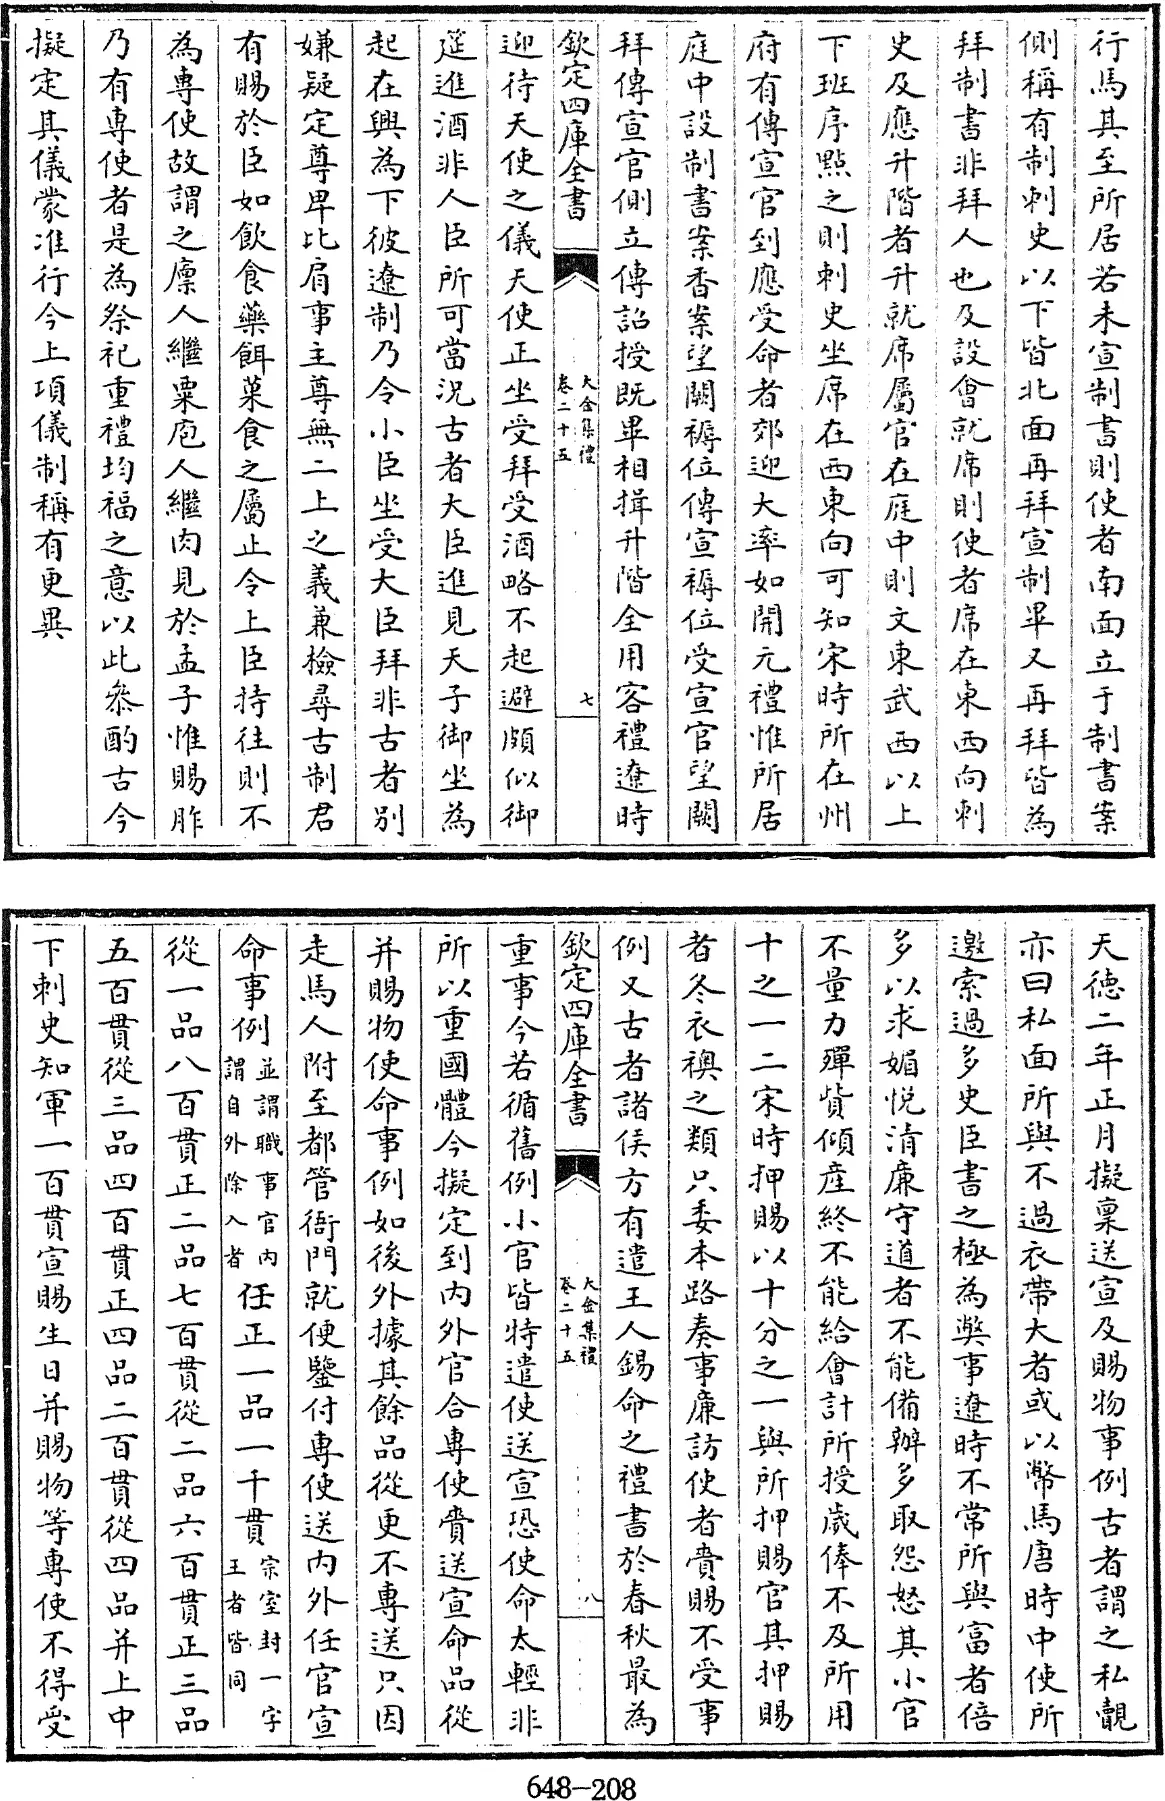 行馬其至所居若未宣制書則使者南面立于制書案
側稱有制刺史以下皆北面再拜宣制畢又再拜皆為
拜制書非拜人也及設會就席則使者席在東西向刺
史及應升階者升就席屬官在庭中則文東武西以上
下班序㸃之則刺史坐席在西東向可知宋時所在州
府有傳宣官到應受命者郊迎大率如開元禮惟所居
庭中設制書案香案望闕褥位傳宣褥位受宣官望闕
拜傳宣官側立傳詔授既畢相揖升階全用客禮遼時
欽定四庫全書
大金集禮
卷二十五
七
迎待天使之儀天使正坐受拜受酒略不起避頗似御
筵進酒非人臣所可當況古者大臣進見天子御坐為
起在輿為下彼遼制乃令小臣坐受大臣拜非古者别
嫌疑定尊卑比肩事主尊無二上之義兼檢尋古制君
有賜於臣如飲食藥餌菓食之屬止令上臣持往則不
為專使故謂之廩人繼粟庖人繼肉見於孟子惟賜胙
乃有專使者是為祭祀重禮均福之意以此叅酌古今
擬定其儀蒙准行今上項儀制稱有更異
天德二年正月擬稟送宣及賜物事例古者謂之私覿
亦曰私面所與不過衣帶大者或以幣馬唐時中使所
邀索過多史臣書之極為弊事遼時不常所與富者倍
多以求媚悦清廉守道者不能備辦多取怨怒其小官
不量力殫貲傾產終不能給會計所授歲俸不及所用
十之一二宋時押賜以十分之一與所押賜官其押賜
者冬衣襖之類只委本路奏事廉訪使者賫賜不受事
例又古者諸侯方有遣王人錫命之禮書於春秋最為
欽定四庫全書
大金集禮
卷二十五
八
重事今若循舊例小官皆特遣使送宣恐使命太輕非
所以重國體今擬定到内外官合專使賫送宣命品從
并賜物使命事例如後外據其餘品從更不專送只因
走馬人附至都管衙門就便鑒付專使送内外任官宣
命事例並謂職事官内謂自外除入者任正一品一千貫宗室封一字王者皆同
從一品八百貫正二品七百貫從二品六百貫正三品
五百貫從三品四百貫正四品二百貫從四品并上中
下刺史知軍一百貫宣賜生日并賜物等專使不得受
648-208